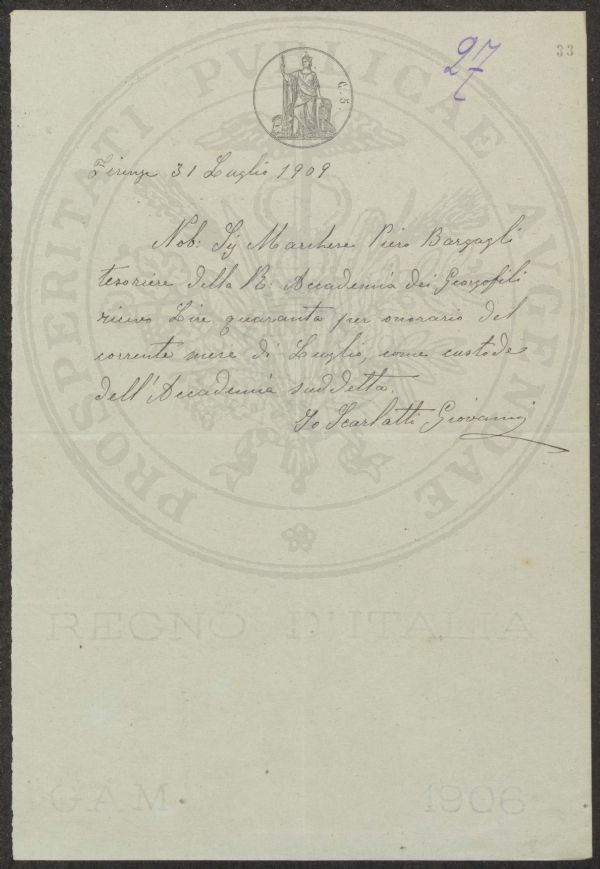 27
33
C. 5
PROSPERITATI PVBLICAE AVGENDAE
Firenze 31 Luglio 1909
Nob: Sig Marchese Piero Bargagli
tesoriere della R: Accademia dei Georgofili
ricevo Lire quaranta per onorario del
corrente mese di Luglio, come custode
dell'Accademia suddetta.
Io Scarlatti Giovanni
REGNO D'ITALIA
GAM 1906